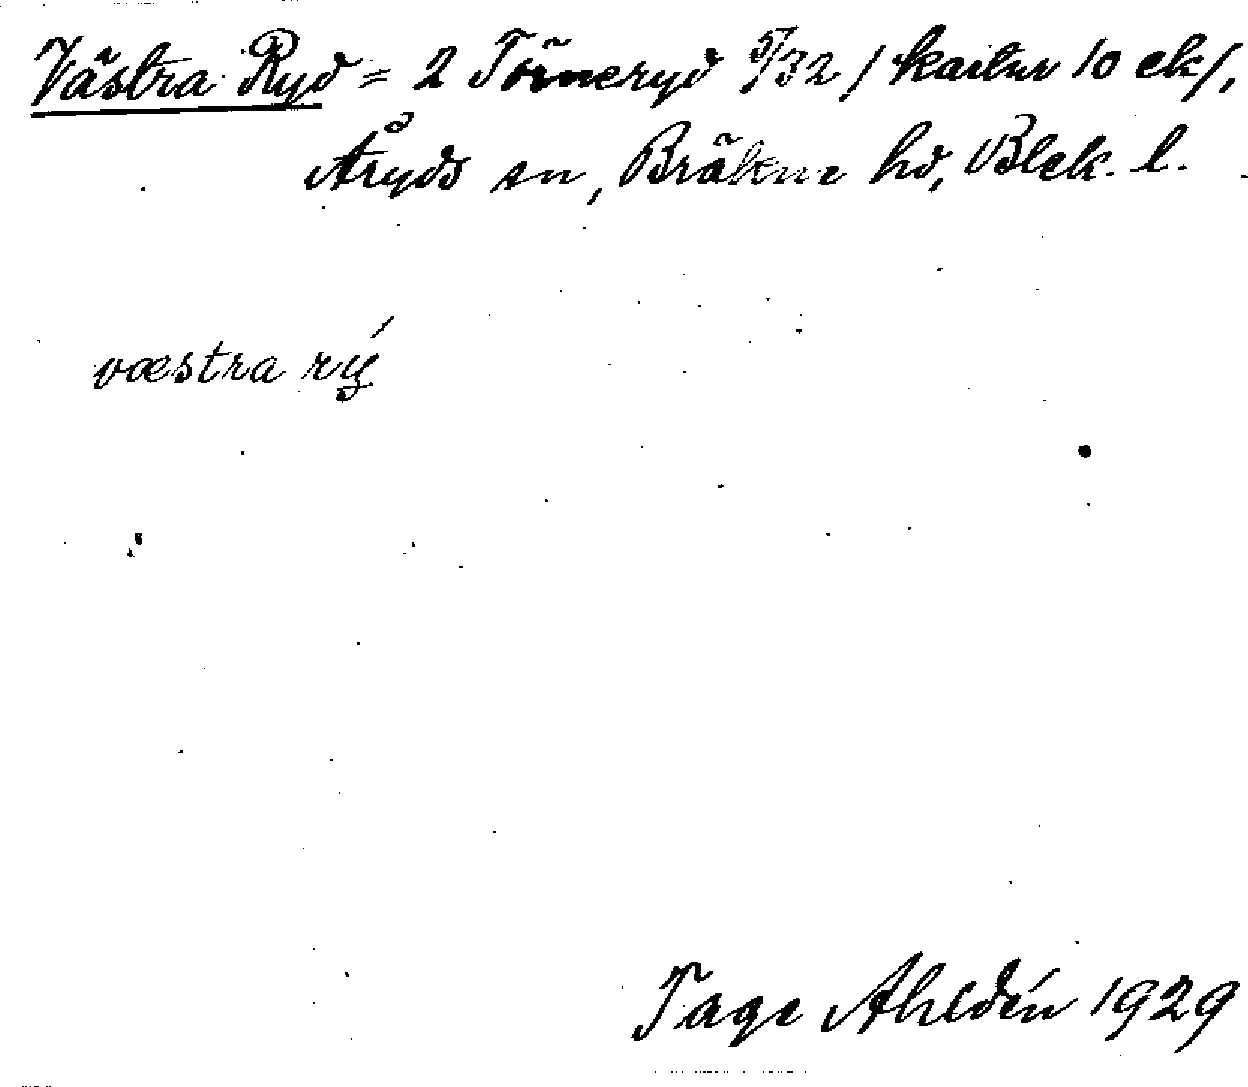 Västra Ryd = 2 Törneryd 5/32 / kartur 10 ek/,
Åryds sn, Bräkne hd, Blek. l.
væstra rý
Tage Ahldén 1929